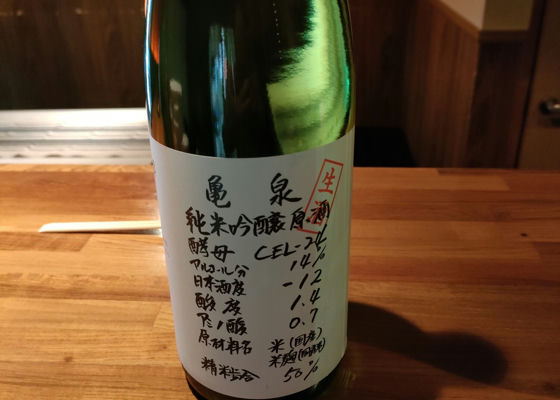 亀泉
生酒
純米吟醸原酒
酵母 CEL-24
アルコール分 14%
日本酒度 -12
酸度 1.4
アミノ酸 0.7
原材料名 米(国産)
米麹(国産米)
精米歩合 50%